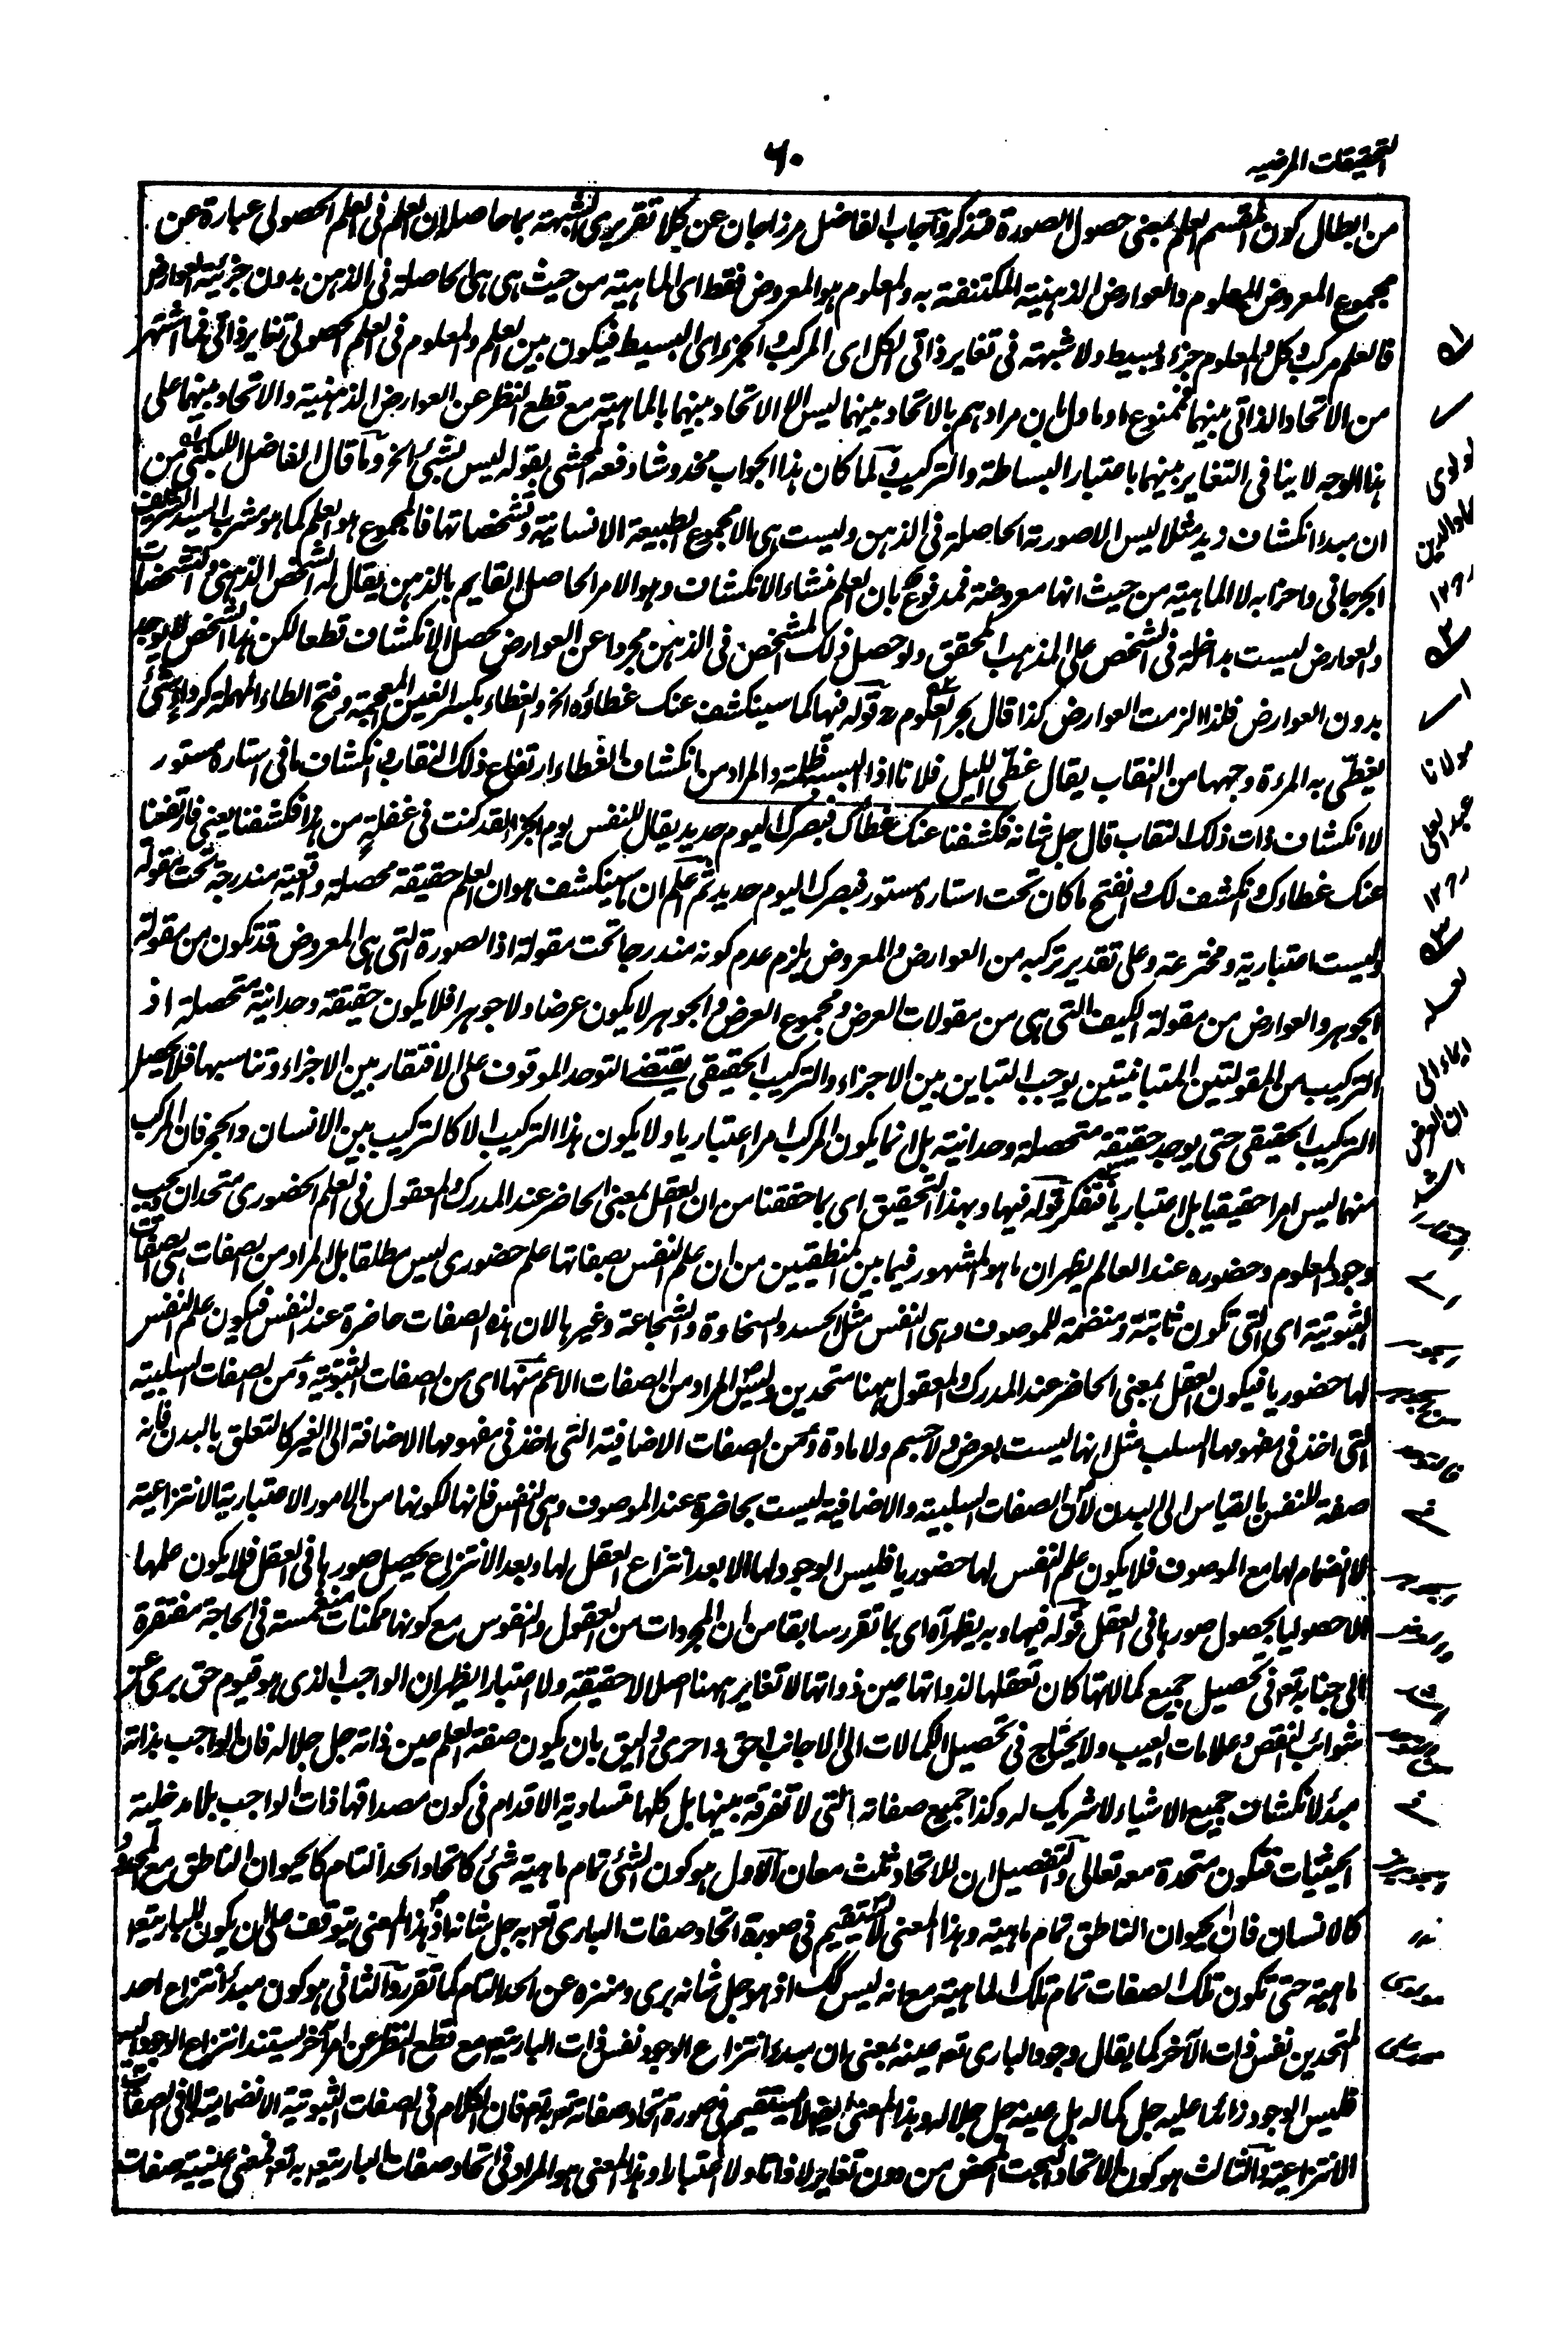 التحقيقات المرضيه
٦٠
من ابطال كون المقسم العلم بمعنى حصول الصورة فتذكر وآجاب الفاضل مرزاجان عن كلا تقريرى الشبهة بما حاصله ان العلم فى العلم الحصولى عبارة عن
مجموع المعروض المعلوم والعوارض الذهنية المكتنفة به والمعلوم هو المعروض فقط اى الماهية من حيث هى هى الحاصلة فى الذهن بدون جزئية العوارض
فالعلم مركب وكل والمعلوم جزء وبسيط ولا شبهة فى تغاير ذاتى الكل اى المركب والجزء اى البسيط فيكون بين العلم والمعلوم فى العلم الحصولى تغاير ذاتى فما اشتهر
من الاتحاد الذاتى بينهما فممنوع او ماول بان مرادهم بالاتحاد بينهما ليس الا الاتحاد بينهما بالماهية مع قطع النظر عن العوارض الذهنية والاتحاد بينهما على
هذا الوجه لا ينافى التغاير بينهما باعتبار البساطة والتركيب ولما كان هذا الجواب مخدوشا دفعه المحشى بقوله ليس بشئ الخ وما قال الفاضل اللبكنى من
ان مبدء انكشاف زيد مثلا ليس الا صورته الحاصلة فى الذهن وليست هى الا مجموع الطبيعة الانسانية وتشخصاتها فالمجموع هو العلم كما هو مشرب السيد الشريف
الجرجانى واحزابه لا الماهية من حيث انها معروضة فمدفوع بان العلم منشاء الانكشاف وهو الامر الحاصل القايم بالذهن يقال له الشخص الذهنى والتشخصات
والعوارض ليست بداخلة فى الشخص على المذهب المحقق ولو حصل ذلك الشخص فى الذهن مجردا عن العوارض يحصل الانكشاف قطعا لكن هذا الشخص لا يوجد
بدون العوارض فلذا لزمت العوارض كذا قال بحر العلوم رح قوله فيها كما سينكشف عنك غطاؤه الخ والغطاء بكسر الغين المعجمة وفتح الطاء المهملة كرداء شئ
يغطى به المرءة وجهها من النقاب يقال غطى الليل فلانا اذا البسه ظلمته والمراد من انكشاف الغطاء ارتفاع ذلك النقاب وانكشاف ما فى استاره مستور
لا انكشاف ذات ذلك النقاب قال جل شانه فكشفنا عنك غطآءك فبصرك اليوم حديد يقال للنفس يوم الجزاء لقد كنت فى غفلةٍ من هذا فكشفنا يعنى فارتفعنا
عنك غطاءك وانكشف لك وانفتح ما كان تحت استاره مستور فبصرك اليوم حديد ثم اعلم ان ما سينكشف هو ان العلم حقيقة محصلة واقعية مندرجة تحت مقولة
وليست اعتبارية ومخترعة وعلى تقدير تركبه من العوارض والمعروض يلزم عدم كونه مندرجا تحت مقولة اذ الصورة التى هى المعروض قد تكون من مقولة
الجوهر والعوارض من مقولة الكيف التى هى من مقولات العرض ومجموع العرض والجوهر لا يكون عرضا ولا جوهرا فلا يكون حقيقة وحدانية متحصلة اذ
التركيب من المقولتين المتباينتين يوجب التباين بين الاجزاء والتركيب الحقيقى يقتضى التوحد الموقوف على الافتقار بين الاجزاء وتناسبها فلا يحصل
التركيب الحقيقى حتى يوجد حقيقة متحصلة وحدانية بل انما يكون المركب امرا اعتباريا ولا يكون هذا التركيب الا كالتركيب بين الانسان والحجر فان المركب
منهما ليس امرا حقيقيا بل اعتباريا فتفكر قوله فيها وبهذا التحقيق اى بما حققنا من ان العقل بمعنى الحاضر عند المدرك والمعقول فى العلم الحضورى متحدان يجب
وجود المعلوم وحضوره عند العالم يظهر ان ما هو المشهور فيما بين المنطقيين من ان علم النفس بصفاتها علم حضورى ليس مطلقا بل المراد من الصفات هى الصفات
الثبوتية اى التى تكون ثابتة ومنضمة للموصوف وهى النفس مثل الحسد والسخاوة والشجاعة وغيرها لان هذه الصفات حاضرة عند النفس فيكون علم النفس
لها حضوريا فيكون العقل بمعنى الحاضر عند المدرك والمعقول ههنا متحدين وليس المراد من الصفات الاعم منها اى من الصفات الثبوتية ومن الصفات السلبية
التى اخذ فى مفهومها السلب مثل انها ليست بعرض ولا جسم ولا مادة ومن الصفات الاضافية التى اخذ فى مفهومها الاضافة الى الغير كالتعلق بالبدن فانه
صفة للنفس بالقياس الى البدن لان الصفات السلبية والاضافية ليست بحاضرة عند الموصوف وهى النفس فانها لكونها من الامور الاعتبارية الانتزاعية
لا انضمام لها مع الموصوف فلا يكون علم النفس لها حضوريا فليس الوجود لها الا بعد انتزاع العقل لها وبعد الانتزاع يحصل صورها فى العقل فلا يكون علمها
الا حصوليا بحصول صورها فى العقل قوله فيها وبه يظهر آه اى بما تقرر سابقا من ان المجردات من العقول والنفوس مع كونها ممكنات منغمسة فى الحاجة مفتقرة
الى جنابه تع فى تحصيل جميع كمالاتها كان تعقلها لذواتها عين ذواتها لا تغاير ههنا اصلا لا حقيقة ولا اعتبارا يظهر ان الواجب الذى هو قيوم حق برى عن
شوائب النقص وعلامات العيب ولا يحتاج فى تحصيل الكمالات الى الاجانب احق واحرى واليق بان يكون صفة العلم عين ذاته جل جلاله فان الواجب بذاته
مبدء لانكشاف جميع الاشياء لا شريك له وكذا جميع صفاته التى لا تفرقة بينها بل كلها متساوية الاقدام فى كون مصداقها ذات الواجب بلا مدخلية
الحيثيات فتكون متحدة معه تعالى والتفصيل ان للاتحاد ثلث معان الاول هو كون الشئ تمام ماهية شئ كاتحاد الحد التام كالحيوان الناطق مع المحدود
كالانسان فان الحيوان الناطق تمام ماهيته وهذا المعنى لا يستقيم فى صورة اتحاد صفات البارى تع به جل شانه اذ هذا المعنى يتوقف على ان يكون للبارى تع
ماهية حتى تكون تلك الصفات تمام تلك الماهية مع انه ليس كك اذ هو جل شانه برى ومنزه عن الحد التام كما تقرر والثانى هو كون مبدء انتزاع احد
المتحدين نفس ذات الآخر كما يقال وجود البارى تع عينه بمعنى ان مبدء انتزاع الوجود نفس ذات البارى تع مع قطع النظر عن امر آخر يستند انتزاع الوجود اليه
فليس الوجود زائدا عليه جل كماله بل عينه جل جلاله وهذا المعنى ايضا لا يستقيم فى صورة اتحاد صفاته تع به تع فان الكلام فى الصفات الثبوتية الانضمامية لا فى الصفات
الانتزاعية والثالث هو كون الاتحاد البحت المحض من دون تغاير لا ذاتا ولا اعتبارا وهذا المعنى هو المراد فى اتحاد صفات البارى تع به تع فمعنى عينية صفات